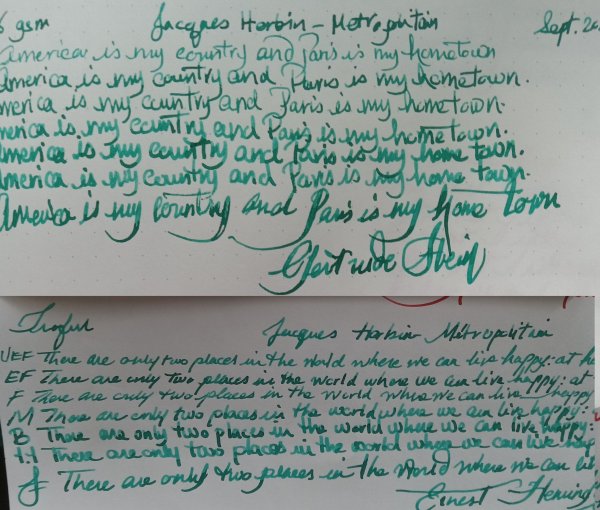 6 gsm Jacques Herbin - Metropolitain Sept. 20
America is my country and Paris is my hometown
America is my country and Paris is my hometown.
merica is my country and Paris is my hometown.
merica is my country and Paris is my hometown.
America is my country and Paris is my home town.
America is my country and Paris is my home town.
America is my country and Paris is my home town
Gertrude Stein
Jacques Herbin Métropolitain
UEF There are only two places in the world where we can live happy: at h
EF There are only two places in the world where we can live happy: at
F There are only two places in the world where we can live happy
M There are only two places in the world where we can live happy:
B There are only two places in the world where we can live happy:
1.1 There are only two places in the world where we can live happ
J There are only two places in the world where we can li
Ernest Heming